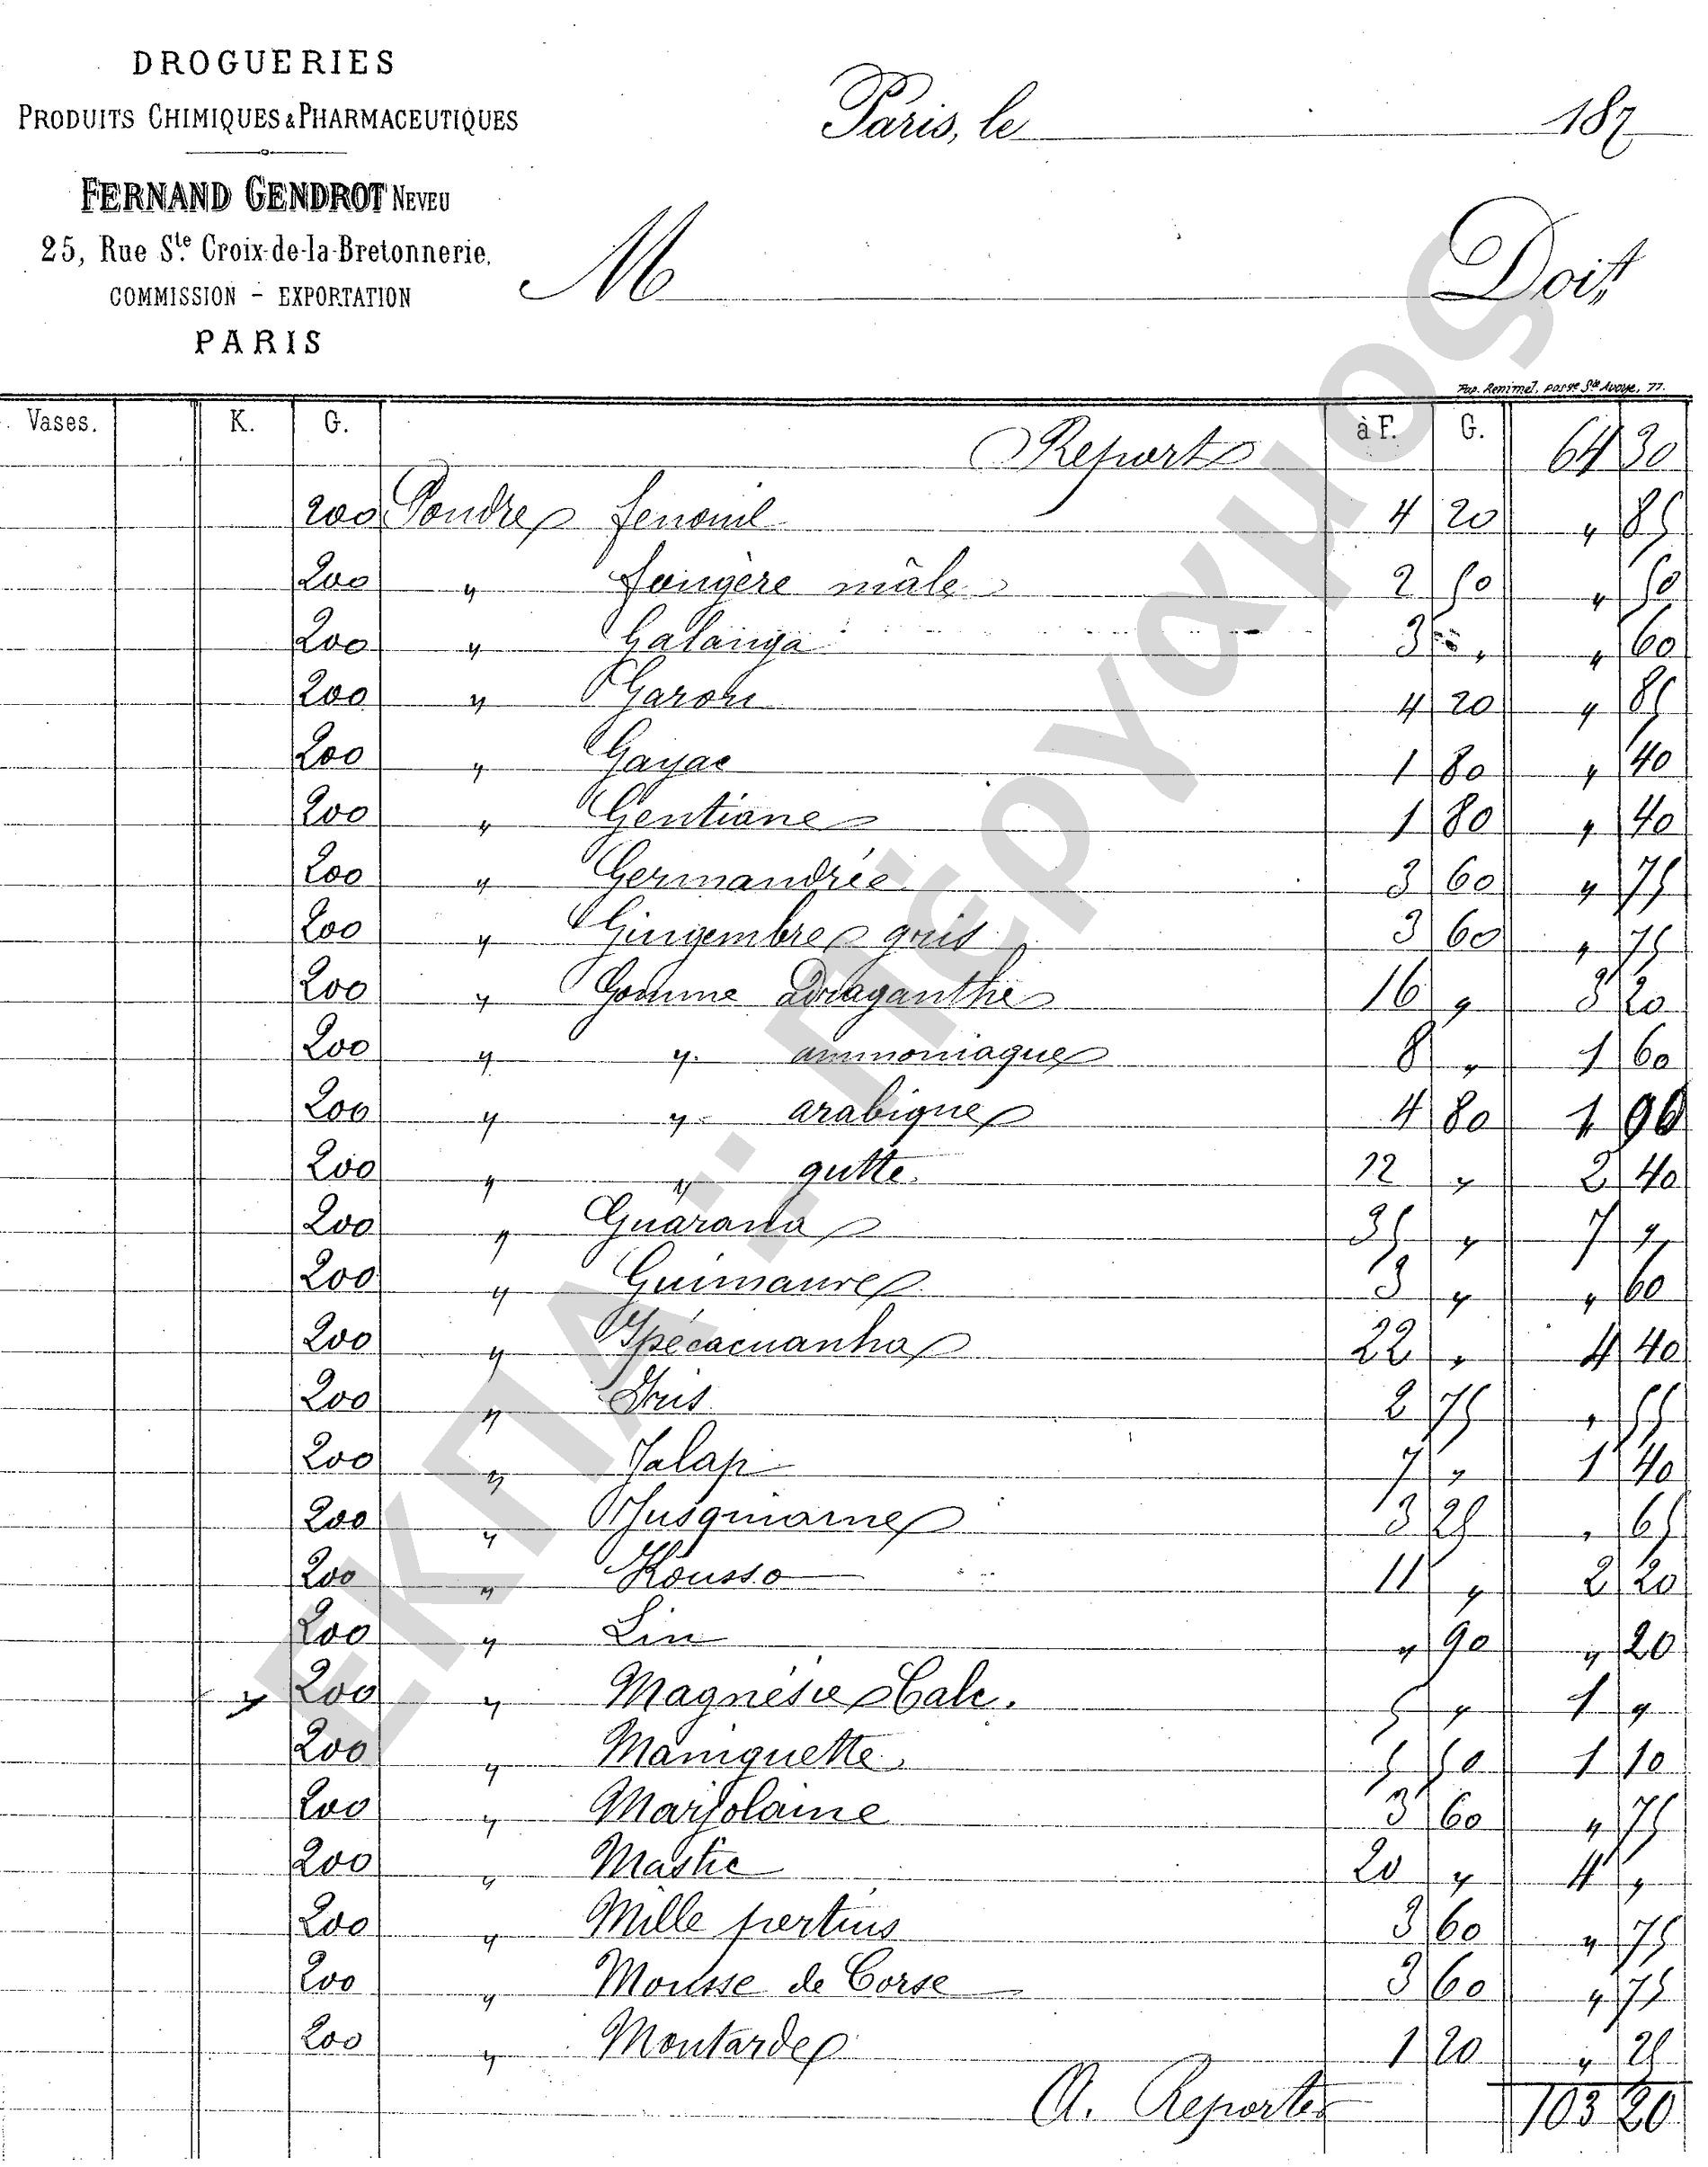 DROGUERIES
PRODUITS CHIMIQUES & PHARMACEUTIQUES
FERNAND GENDROT NEVEU
25, Rue Ste Croix-de-la-Bretonnerie.
COMMISSION - EXPORTATION
PARIS
Paris, le 187
M Doit
Pap. Renimel, passge Ste Avoye, 77.
Vases. K. G. à F. G.
Report 64 30
200 Poudre fenouil 4 20 " 85
200 " fougère mâle 2 50 " 50
200 " Galanga 3 " " 60
200 " Garou 4 20 " 85
200 " Gayac 1 80 " 40
200 " Gentiane 1 80 " 40
200 " Germandrée 3 60 " 75
200 " Gingembre gris 3 60 " 75
200 " Gomme Adraganthe 16 " 3 20
200 " " ammoniaque 8 " 1 60
200 " " arabique 4 80 1 90
200 " " gutte. 12 " 2 40
200 " Guarana 35 " 7 "
200 " Guimauve 3 " " 60
200 " Ipécacuanha 22 " 4 40
200 " Iris 2 75 " 55
200 " Jalap 7 " 1 40
200 " Jusquiame 3 25 " 65
200 " Kousso 11 " 2 20
200 " Lin " 90 " 20
" 200 " Magnésie Calc. 5 " 1 "
200 " Maniguette 5 50 1 10
200 " Marjolaine 3 60 " 75
200 " Mastic 20 " 4 "
200 " Mille pertuis 3 60 " 75
200 " Mousse de Corse 3 60 " 75
200 " Moutarde 1 20 " 25
A. Reporter 103 20
ΕΚΠΑ: Πέργαμος